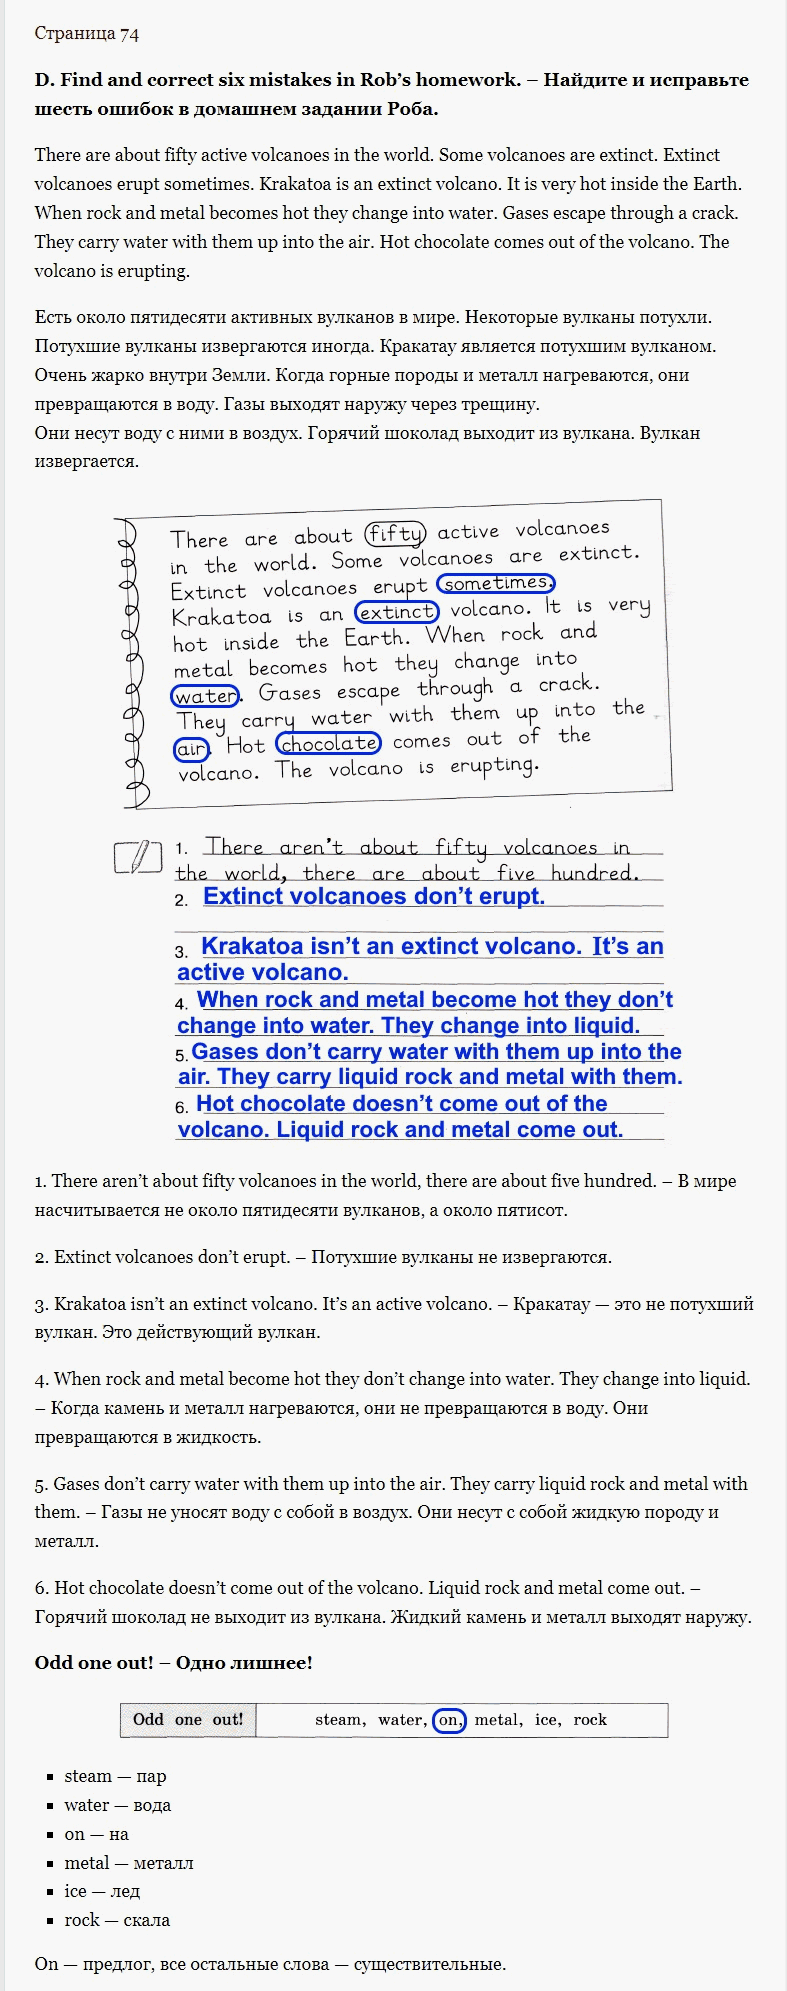 Страница 74
D. Find and correct six mistakes in Rob’s homework. – Найдите и исправьте
шесть ошибок в домашнем задании Роба.
There are about fifty active volcanoes in the world. Some volcanoes are extinct. Extinct
volcanoes erupt sometimes. Krakatoa is an extinct volcano. It is very hot inside the Earth.
When rock and metal becomes hot they change into water. Gases escape through a crack.
They carry water with them up into the air. Hot chocolate comes out of the volcano. The
volcano is erupting.
Есть около пятидесяти активных вулканов в мире. Некоторые вулканы потухли.
Потухшие вулканы извергаются иногда. Кракатау является потухшим вулканом.
Очень жарко внутри Земли. Когда горные породы и металл нагреваются, они
превращаются в воду. Газы выходят наружу через трещину.
Они несут воду с ними в воздух. Горячий шоколад выходит из вулкана. Вулкан
извергается.
There are about fifty active volcanoes
in the world. Some volcanoes are extinct.
Extinct volcanoes erupt sometimes.
Krakatoa is an extinct volcano. It is very
hot inside the Earth. When rock and
metal becomes hot they change into
water. Gases escape through a crack.
They carry water with them up into the
air. Hot chocolate comes out of the
volcano. The volcano is erupting.
1. There aren’t about fifty volcanoes in
the world, there are about five hundred.
2. Extinct volcanoes don’t erupt.
3. Krakatoa isn’t an extinct volcano. It’s an
active volcano.
4. When rock and metal become hot they don’t
change into water. They change into liquid.
5. Gases don’t carry water with them up into the
air. They carry liquid rock and metal with them.
6. Hot chocolate doesn’t come out of the
volcano. Liquid rock and metal come out.
1. There aren’t about fifty volcanoes in the world, there are about five hundred. – В мире
насчитывается не около пятидесяти вулканов, а около пятисот.
2. Extinct volcanoes don’t erupt. – Потухшие вулканы не извергаются.
3. Krakatoa isn’t an extinct volcano. It’s an active volcano. – Кракатау — это не потухший
вулкан. Это действующий вулкан.
4. When rock and metal become hot they don’t change into water. They change into liquid.
– Когда камень и металл нагреваются, они не превращаются в воду. Они
превращаются в жидкость.
5. Gases don’t carry water with them up into the air. They carry liquid rock and metal with
them. – Газы не уносят воду с собой в воздух. Они несут с собой жидкую породу и
металл.
6. Hot chocolate doesn’t come out of the volcano. Liquid rock and metal come out. –
Горячий шоколад не выходит из вулкана. Жидкий камень и металл выходят наружу.
Odd one out! – Одно лишнее!
Odd one out! steam, water, on, metal, ice, rock
▪ steam — пар
▪ water — вода
▪ on — на
▪ metal — металл
▪ ice — лед
▪ rock — скала
On — предлог, все остальные слова — существительные.